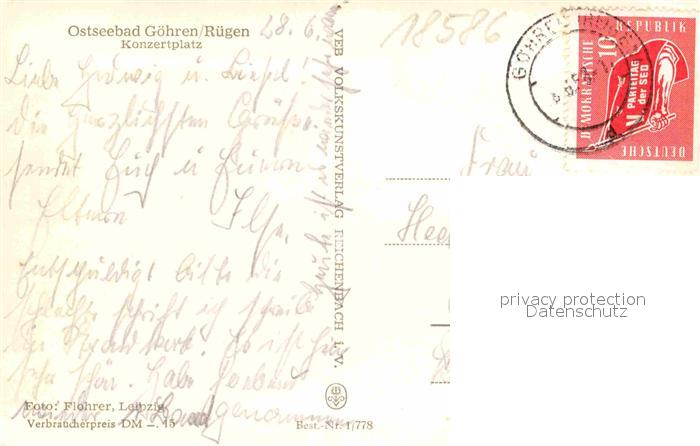 Ostseebad Göhren/Rügen
Konzertplatz
28.6.
18586
Liebe Hedwig u. Liesel!
die herzlichsten Grüsse
sendet Euch u Euren
Eltern Ilse.
Entschuldigt bitte die
schlechte schrift ich schreib
im Strandkorb. Es ist hier
sehr schön. Habe soeben
wieder genommen
VEB VOLKSKUNSTVERLAG REICHENBACH i. V.
Foto: Flohrer, Leipzig
Verbraucherpreis DM –. 15
Best.-Nr. 1/778
Frau
DEUTSCHE DEMOKRATISCHE REPUBLIK
10
VI. PARTEITAG
der SED
privacy protection
Datenschutz